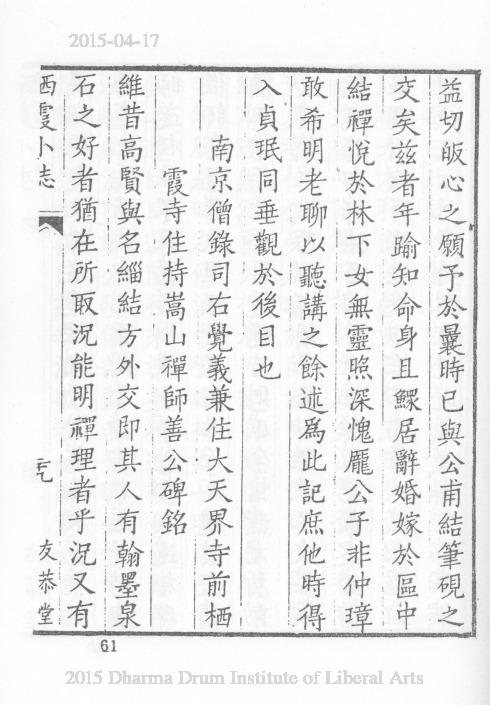 2015-04-17
益切皈心之願予於曩時已與公甫結筆硯之
交矣兹者年踰知命身且鰥居辭婚嫁於區中
結禪悅於林下女無靈照深愧龐公子非仲璋
敢希明老聊以聽講之餘述爲此記庶他時得
入貞珉同垂觀於後目也
南京僧錄司右覺義兼住大天界寺前栖
霞寺住持嵩山禪師善公碑銘
維昔高賢與名緇結方外交即其人有翰墨泉
石之好者猶在所取況能明禪理者乎況又有
志 友恭堂
61
2015 Dharma Drum Institute of Liberal Arts